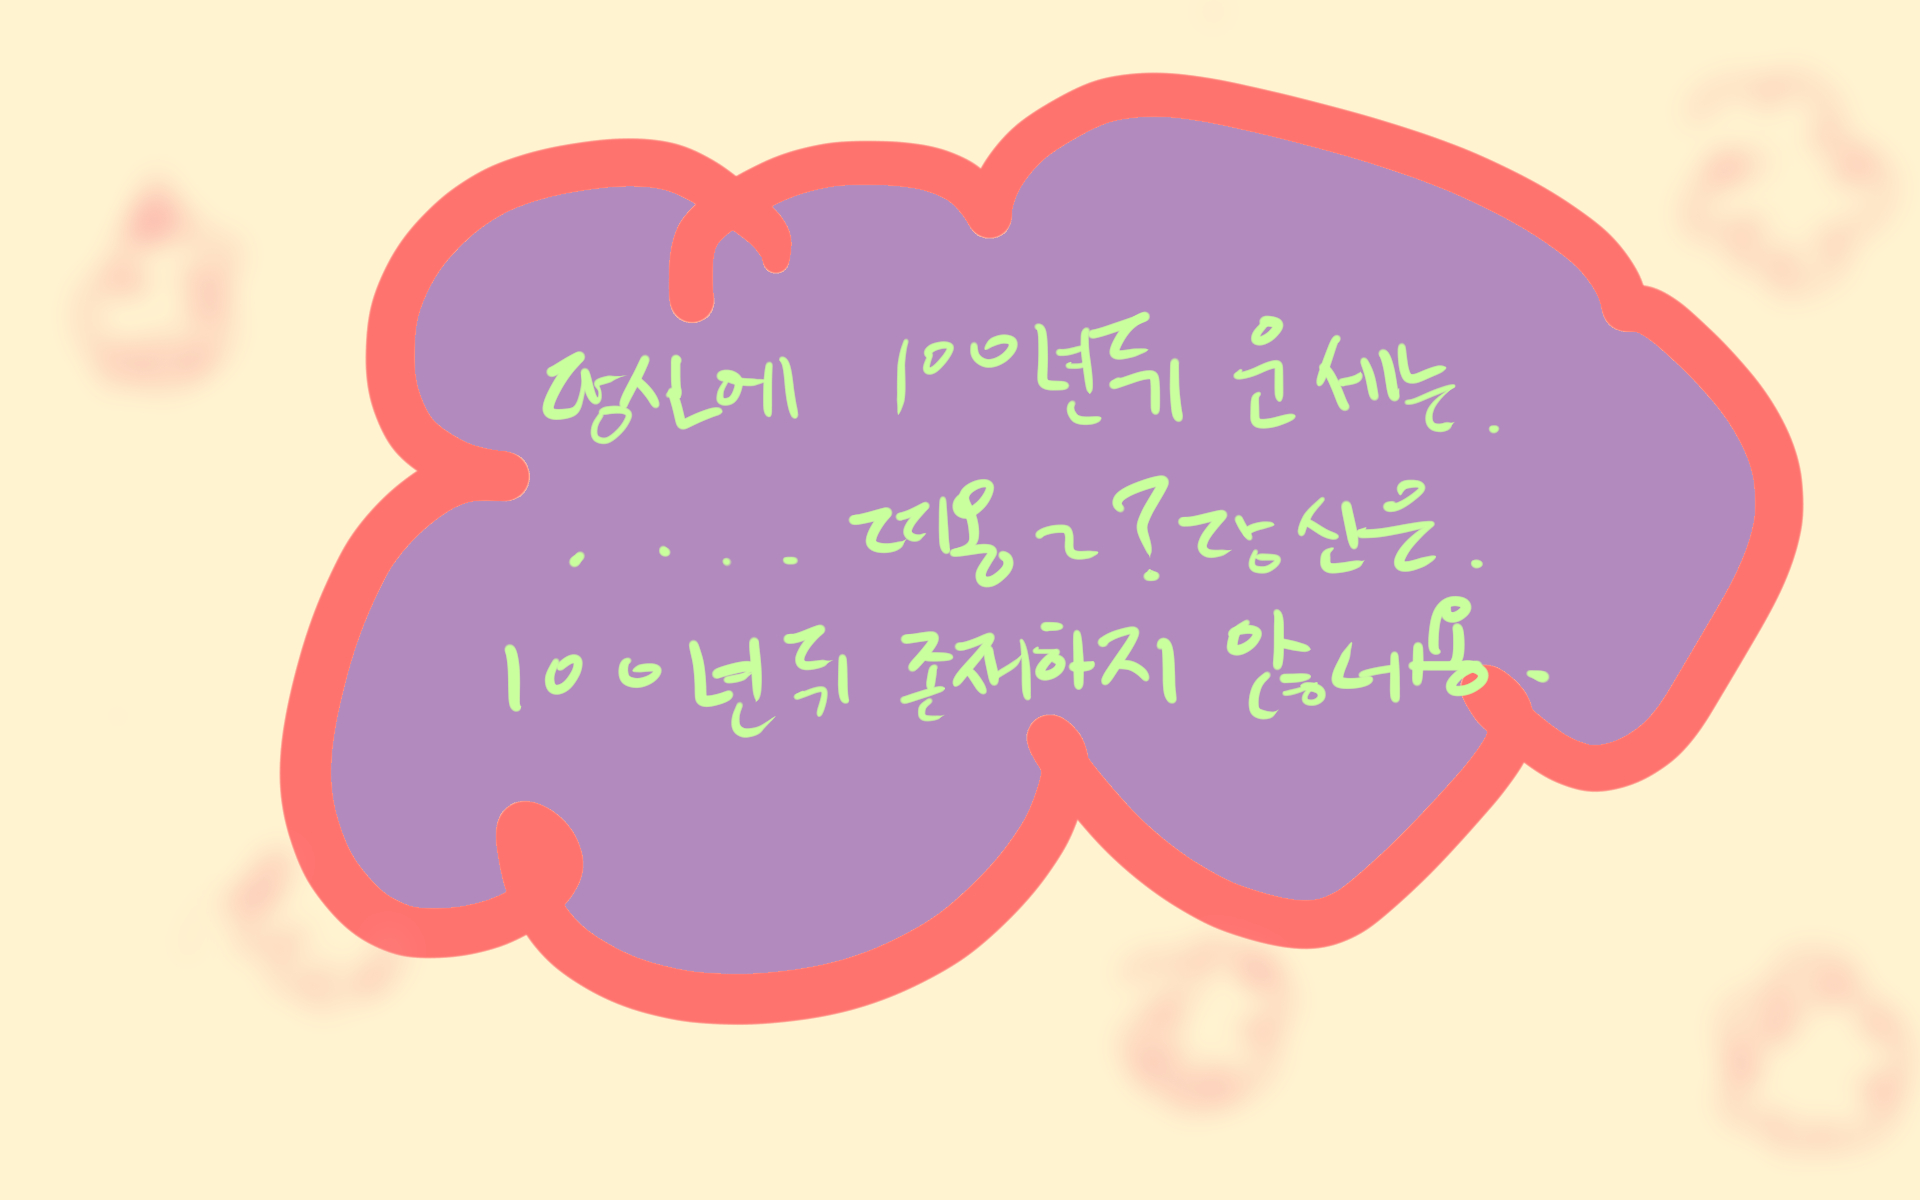 당신에 100년뒤 운세는.
. . . . 띠용~? 당신은.
100년뒤 존재하지 않네용.